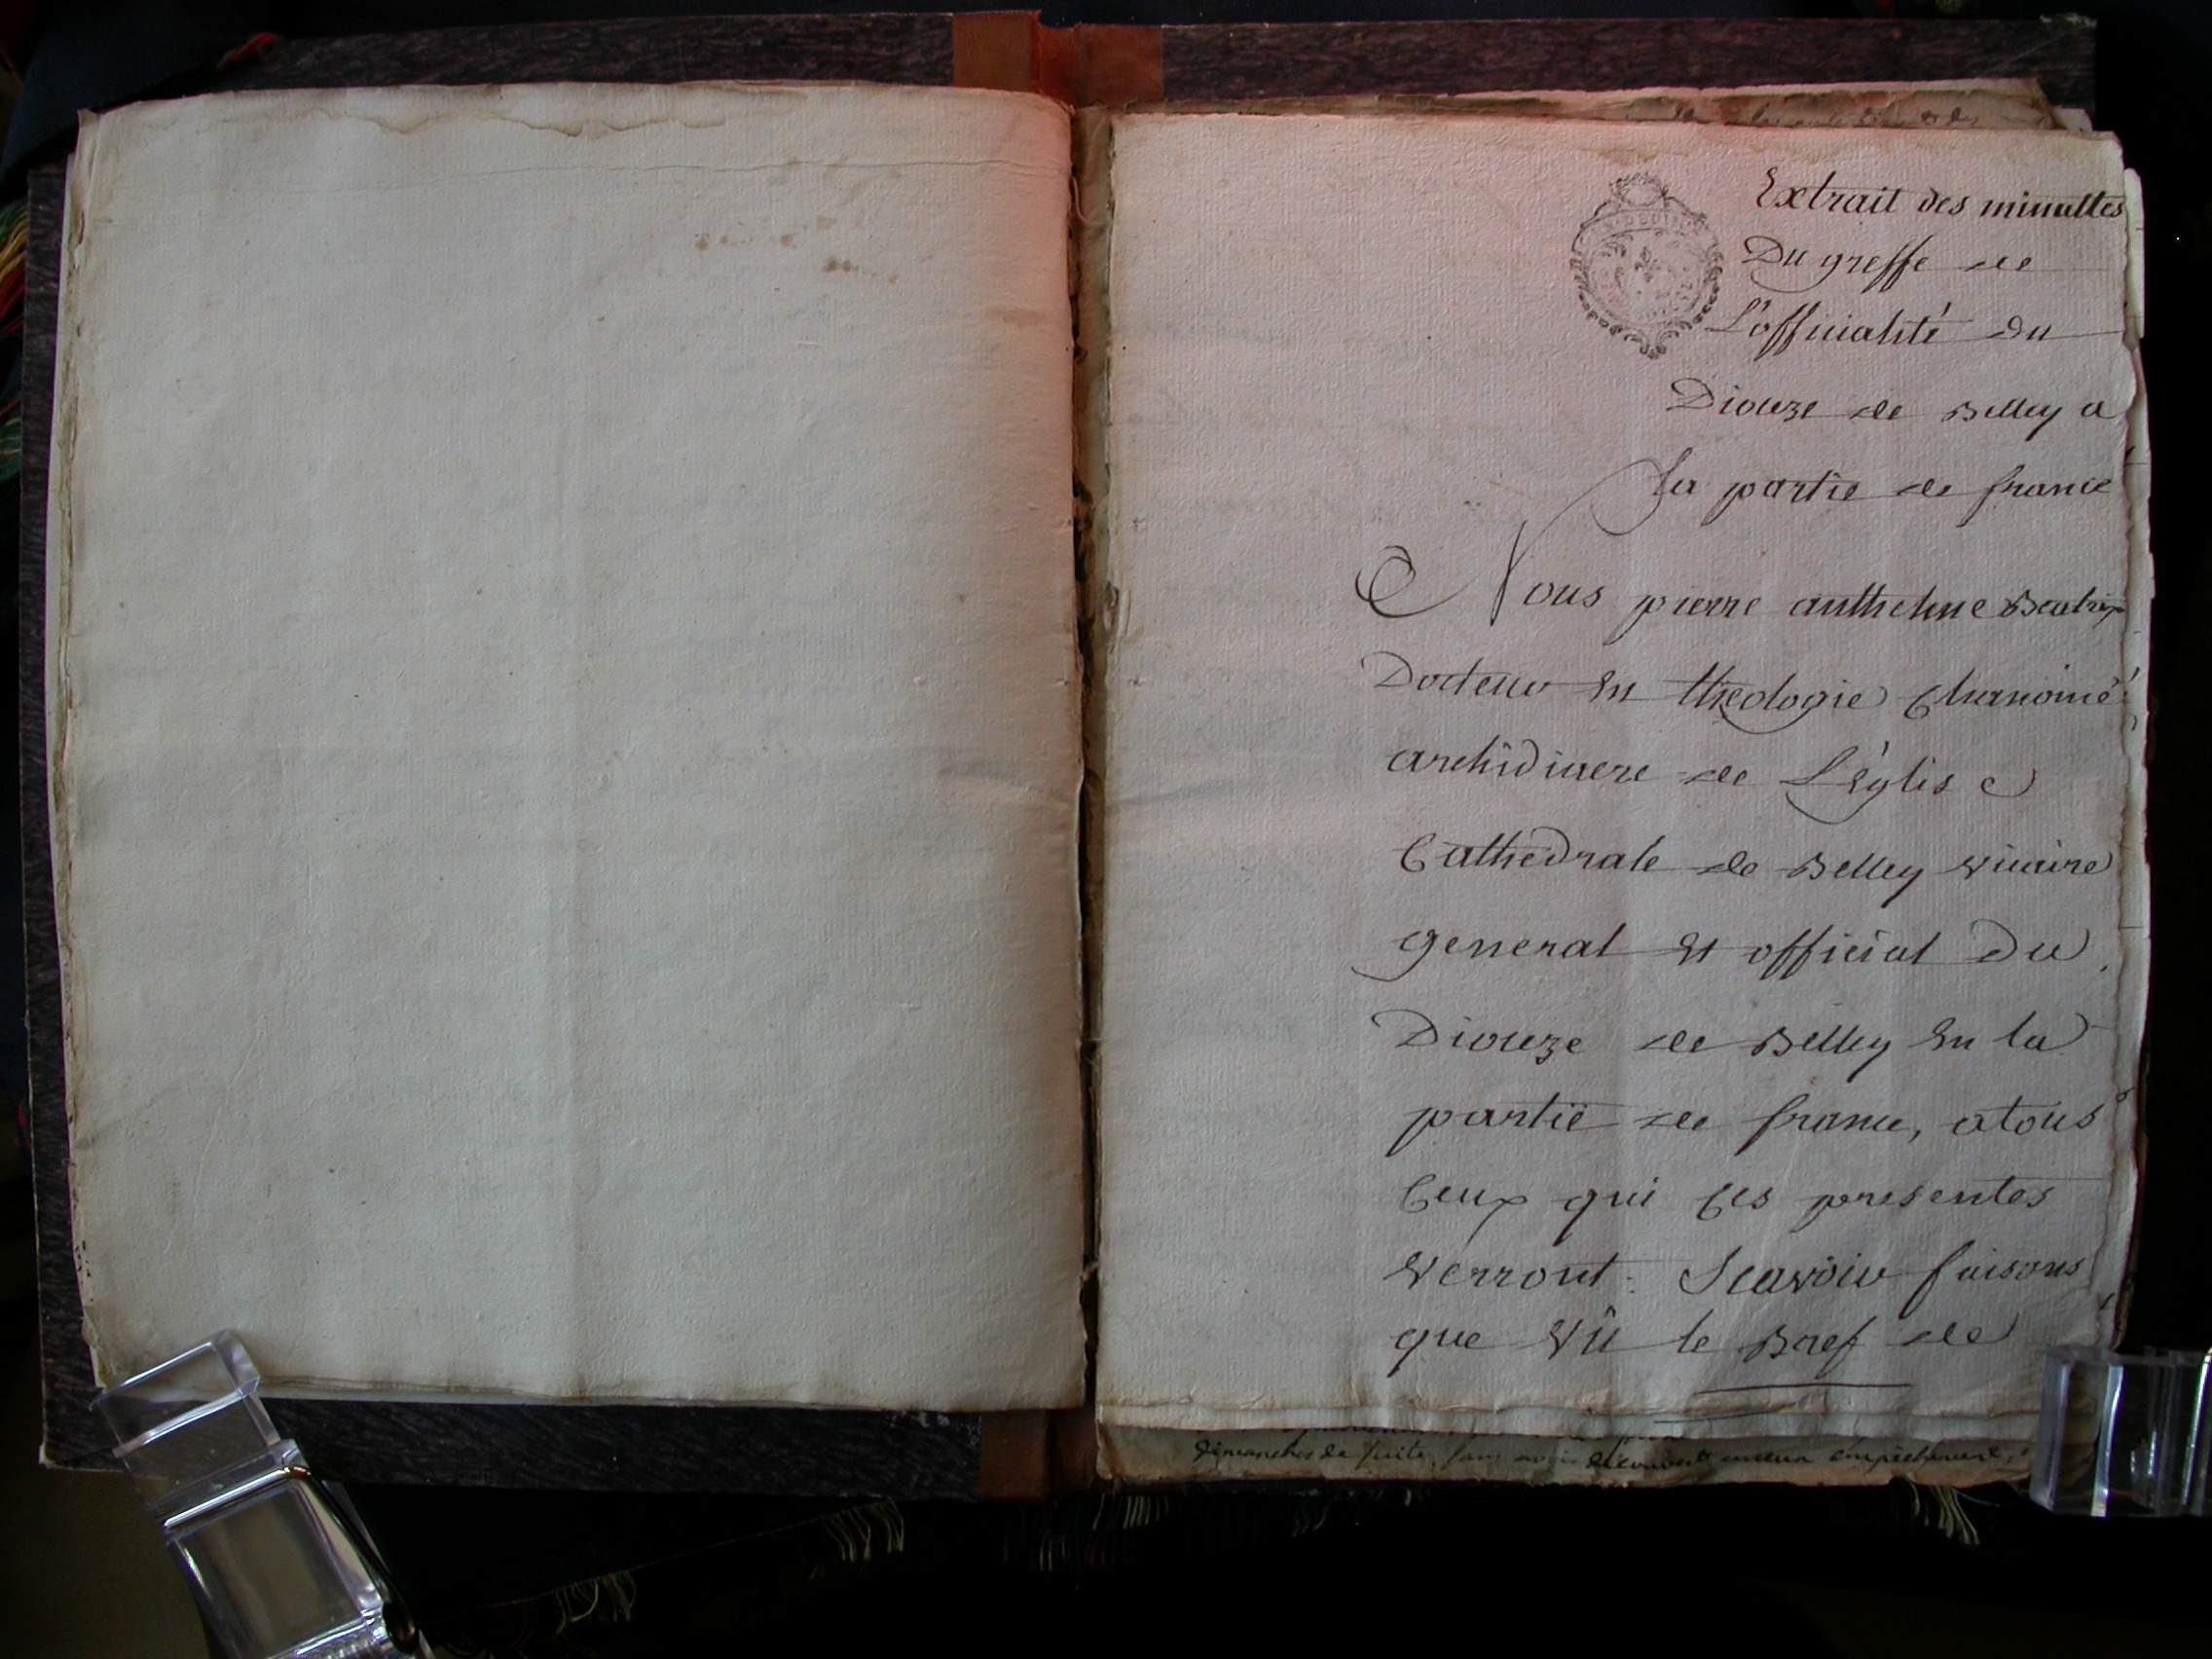 Extrait des minuttes
Du greffe de
L'officialité du
Diocèze de Belley a
La partie de france
Nous pierre anthelme Beatrix
Docteur En theologie Chanoine
archidiacre de L'Eglise
Cathedrale de Belley Vicaire
general Et official Du
Diocèze de Belley En la
partie de france, atous
Ceux qui Ces presentes
Verront: Scavoir faisons
que Vû le Bref de
dimanches de suite, sans avoir découvert aucun empêchement,